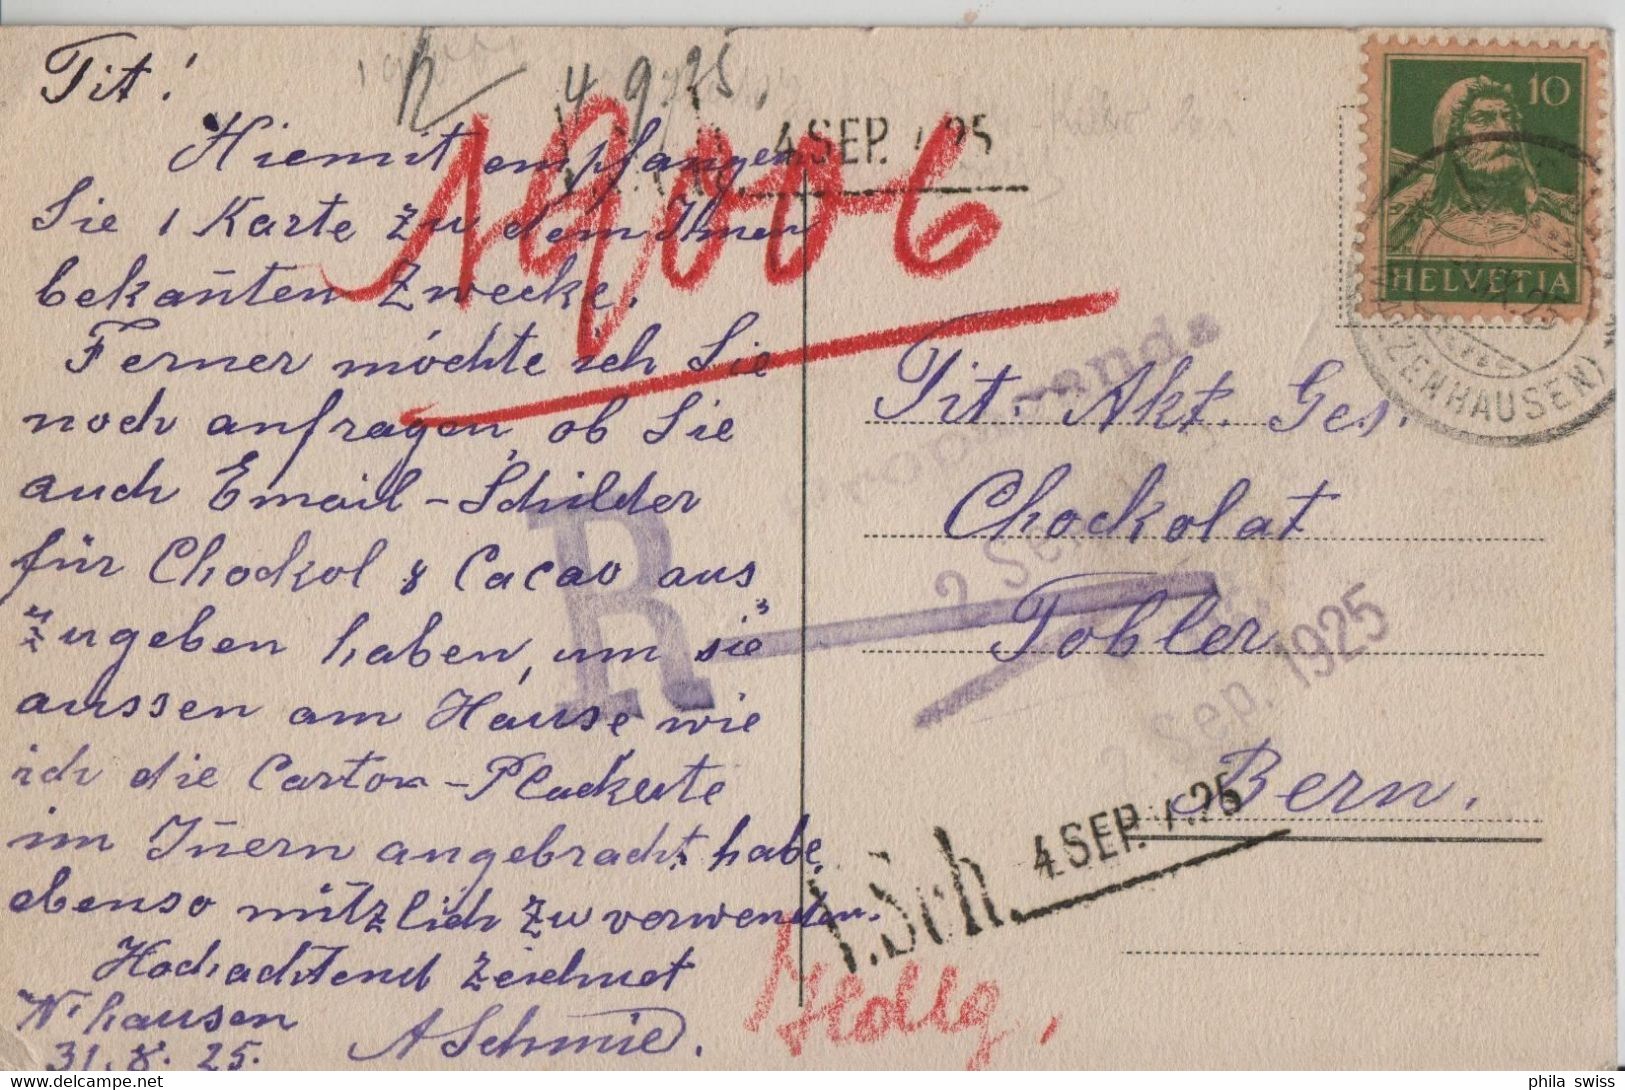 Tit!
4.9.25.
4 SEP. 1.25
Hiemit empfangen
Sie 1 Karte zu dem Ihnen
bekan̄ten Zwecke.
Ferner möchte ich Sie
noch anfragen, ob Sie
auch Email-Schilder
für Chockol & Cacao aus
zugeben haben, um sie
aussen am Hause wie
ich die Carton-Plackate
im In̄ern angebracht habe,
ebenso nützlich zu verwenden.
Hochachtend zeichnet
N'hausen
31.8.25.
A Schmid.
19006
R
10
HELVETIA
ZENHAUSEN)
Propaganda
Tit. Akt. Ges.
Chockolat
Tobler
Bern.
2 Sep.
2 Sep. 1925
Sch. 4 SEP. 1.25
phila swiss